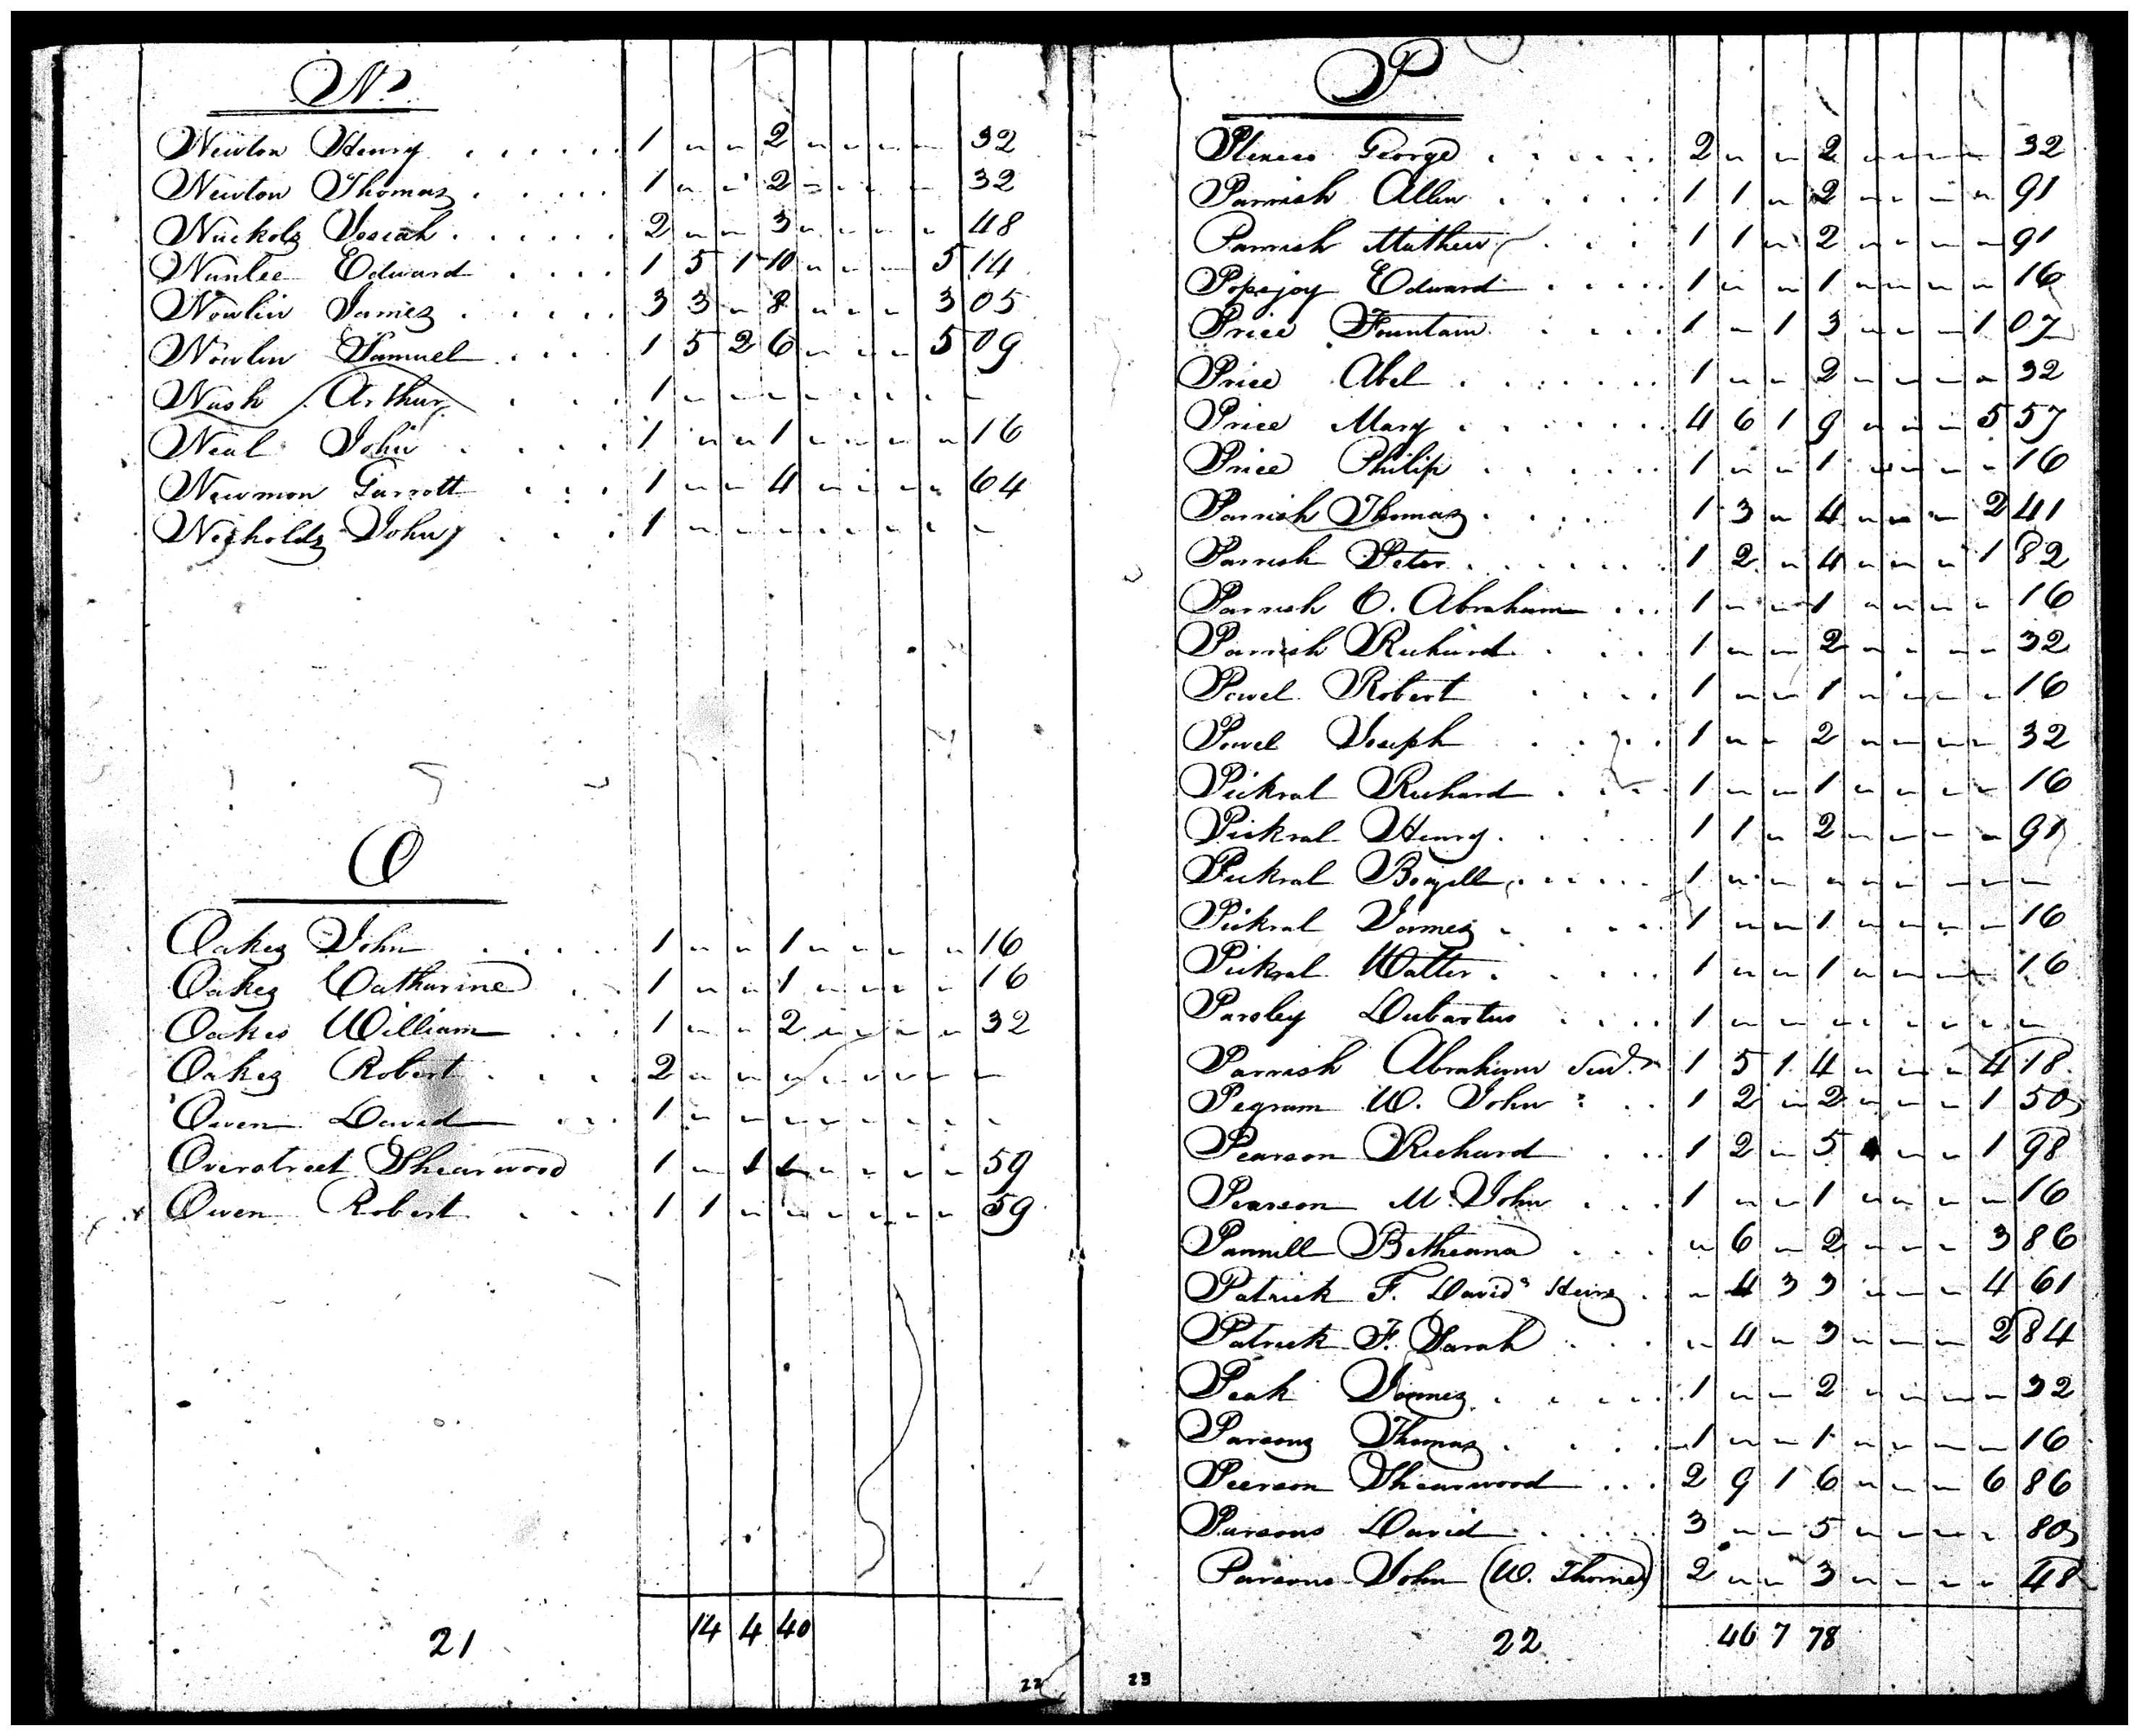 N
Newton Henry . . . . . 1 " " 2 " " " " 32
Newton Thomas . . . . . 1 " " 2 " " " " 32
Nuckols Josiah . . . . . 2 " " 3 " " " " 48
Nunlee Edward . . . . 1 5 1 10 " " " 5 14
Nowlin James . . . . . 3 3 " 8 " " " 3 05
Nowlin Samuel . . . 1 5 2 6 " " " 5 09
Nash Arthur . . . 1 " " " " " " " "
Neal John . . . . 1 " " 1 " " " " 16
Newmon Garrott . . . 1 " " 4 " " " " 64
Nicholds John . . . 1 " " " " " " " "
O
Oakes John . . . . 1 " " 1 " " " " 16
Oakes Catharine . . 1 " " 1 " " " " 16
Oakes William . . . 1 " " 2 " " " " 32
Oakes Robert . . . . 2 " " " " " " " "
Owen David . . . 1 " " " " " " " "
Overstreet Shearwood 1 " 1 " " " " " 59
Owen Robert . . . 1 1 " " " " " " 59
14 4 40
21
22
P
George . . . . . 2 " " 2 " " " " 32
Parrish Allen . . . . . 1 1 " 2 " " " " 91
Parrish Mathew . . . 1 1 " 2 " " " " 91
Popejoy Edward . . . . . 1 " " 1 " " " " 16
Price Fountain . . . . 1 " 1 3 " " " 1 07
Price Abel . . . . . . 1 " " 2 " " " " 32
Price Mary . . . . . . 4 6 1 9 " " " 5 57
Price Philip . . . . . . 1 " " 1 " " " " 16
Parrish Thomas . . . . 1 3 " 4 " " " 2 41
Parrish Peter . . . . . . 1 2 " 4 " " " 1 82
Parrish C. Abraham . . . 1 " " 1 " " " " 16
Parrish Richard . . . . 1 " " 2 " " " " 32
Powel Robert . . . . 1 " " 1 " " " " 16
Powel Joseph . . . . 1 " " 2 " " " " 32
Pickral Richard . . . . 1 " " 1 " " " " 16
Pickral Henry . . . . . 1 1 " 2 " " " " 91
Pickral . . . . . 1 " " " " " " " "
Pickral James . . . . 1 " " 1 " " " " 16
Pickral Walter . . . . . 1 " " 1 " " " " 16
Parsley Dubartus . . . . 1 " " " " " " " "
Parrish Abraham Senr. 1 5 1 4 " " " 4 18
Pegram W. John . . . 1 2 " 2 " " " 1 50
Pearson Richard . . . 1 2 " 5 " " " 1 98
Pearson M. John . . . 1 " " 1 " " " " 16
Pannill Betheana . . . " 6 " 2 " " " 3 86
Patrick F. Davids Heirs . " 4 3 3 " " " 4 61
Patrick F. Sarah . . . " 4 " 3 " " " 2 84
Peak James . . . . . 1 " " 2 " " " " 32
Parsons Thomas . . . . 1 " " 1 " " " " 16
Peerson Shearwood . . . 2 9 1 6 " " " 6 86
Parsons David . . . . . 3 " " 5 " " " " 80
Parsons John (W. Thomas) 2 " " 3 " " " " 48
46 7 78
22
23